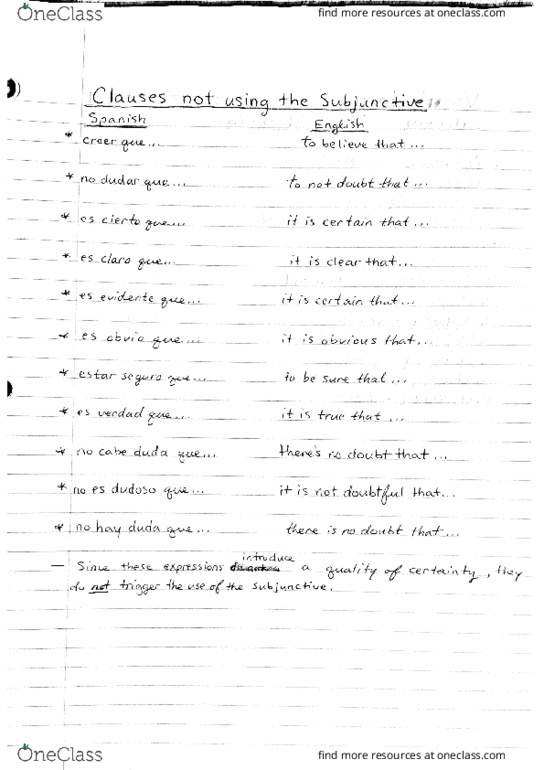 OneClass find more resources at oneclass.com
Clauses not using the Subjunctive
Spanish English
* creer que... to believe that...
* no dudar que... to not doubt that...
* es cierto que... it is certain that...
* es claro que... it is clear that...
* es evidente que... it is certain that...
* es obvio que... it is obvious that...
* estar seguro que... to be sure that...
* es verdad que... it is true that...
* no cabe duda que... there's no doubt that...
* no es dudoso que... it is not doubtful that...
* no hay duda que... there is no doubt that...
introduce
— Since these expressions a quality of certainty, they
do not trigger the use of the subjunctive.
OneClass find more resources at oneclass.com